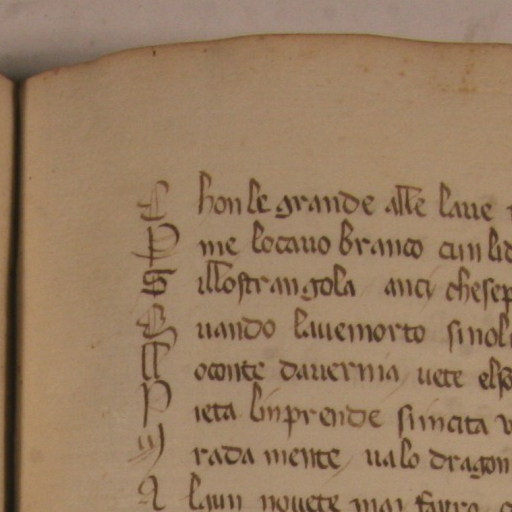 C honle grande alle laue
P me locauo branco cun lid
E illo strangola anci chesep
Q uando lauemorto sinol
L oconte dauernia uete els
P ieta linprende simcita v
M rada mente ualo dragon
A lqun nouete mai fatto